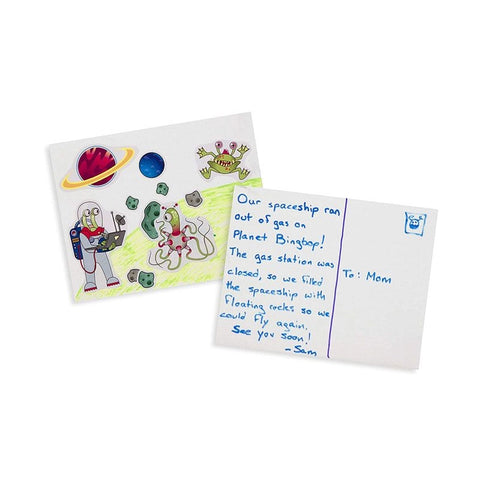 Our spaceship ran
out of gas on
Planet Bingbop!
The gas station was
closed, so we filled
the spaceship with
floating rocks so we
could fly again.
See you soon!
- Sam
To: Mom